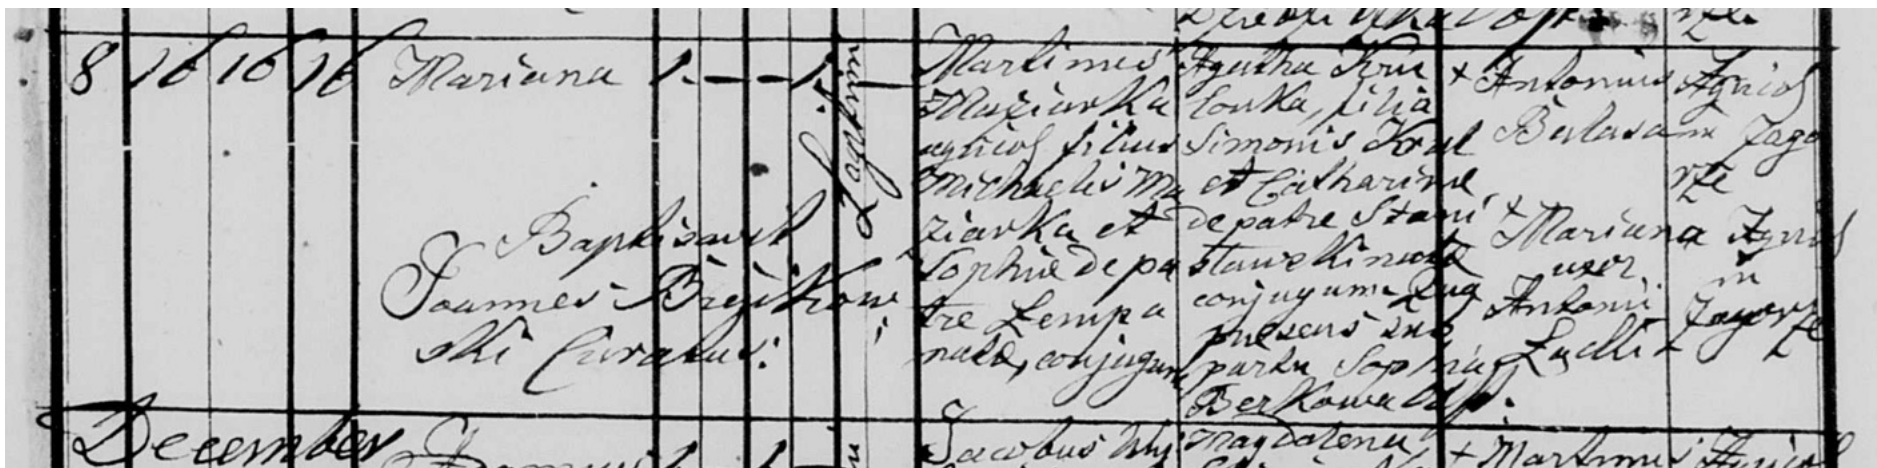 8 16 16 16 Mariana 1. — — 1. —
Baptisavit
Joannes
ski Curatus.
Martinus
Maziarka
agricol filius
Michaelis Ma
ziarka et
Sophiæ de pa
tre Lempa
natæ, conjugum
Agatha Kru
lonka, filia
Simonis Krul
et Catharinæ
de patre Stani
slawski natæ
conjugum
præsens
partu Sophia
Berkowa
+ Antonius
Balasa
+ Mariana
uxor
Antonii
Agricol
in Zago
rze
Agricol
in
Zagorze
December
Jacobus
Magdalena
+ Martinus
Agricol